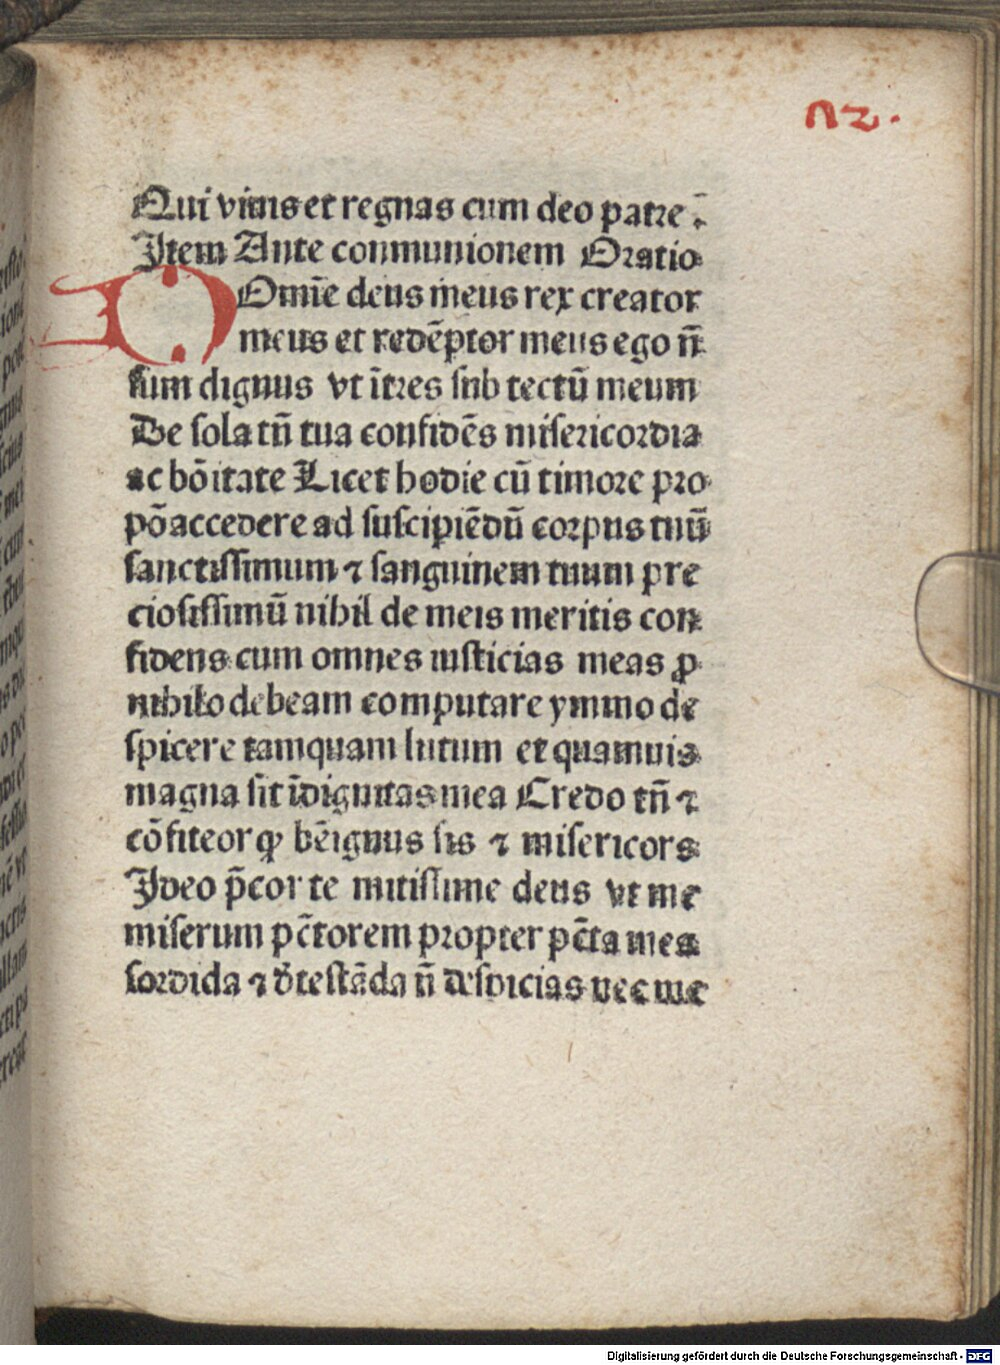 n2.
Qui viuis et regnas cum deo patre ⁊̄
Item Ante conmunionem Oratio
O Omīe deus meus rex creator
meus et redēptor meus ego n̄
sum dignus vt ītres sub tectū meum
De sola tn̄ tua confidēs misericordia
ac bōitate Licet hodie cū timore pro
pōaccedere ad suscipiēdū corpus tuū
sanctissimum ⁊ sanguinem tuum pre
ciosissimū nihil de meis meritis con
fidens cum omnes iusticias meas ꝓ
nihilo debeam computare ymmo de
spicere tamquam lutum et quamuis
magna sit īdignitas mea Credo tn̄ ⁊
cōfiteor ꝙ bēignus sis ⁊ misericors
Ideo p̄cor te mitissime deus vt me
miserum pc̄torem propter pc̄ta mea
sordida ⁊ d̄testāda n̄ despicias nec me
Digitalisierung gefördert durch die Deutsche Forschungsgemeinschaft - DFG